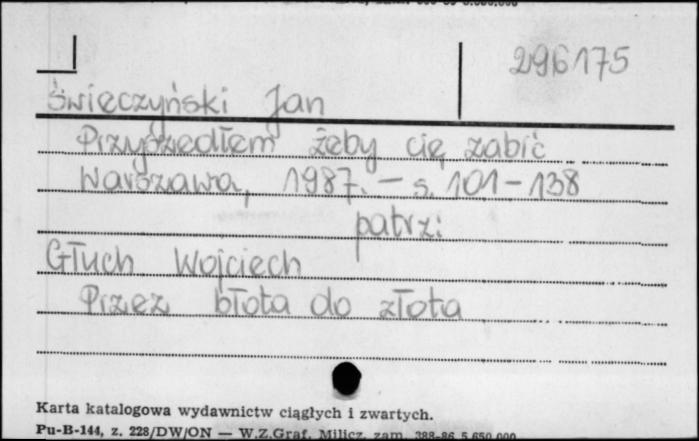 296175
Świeczyński Jan
Przyszedłem żeby cię zabić
Warszawa, 1987. – s. 101–138
patrz:
Głuch Wojciech
Przez błota do złota
Karta katalogowa wydawnictw ciągłych i zwartych.
Pu-B-144, z. 228/DW/ON — W.Z.Graf. Milicz, zam. 388-86 5.650.000